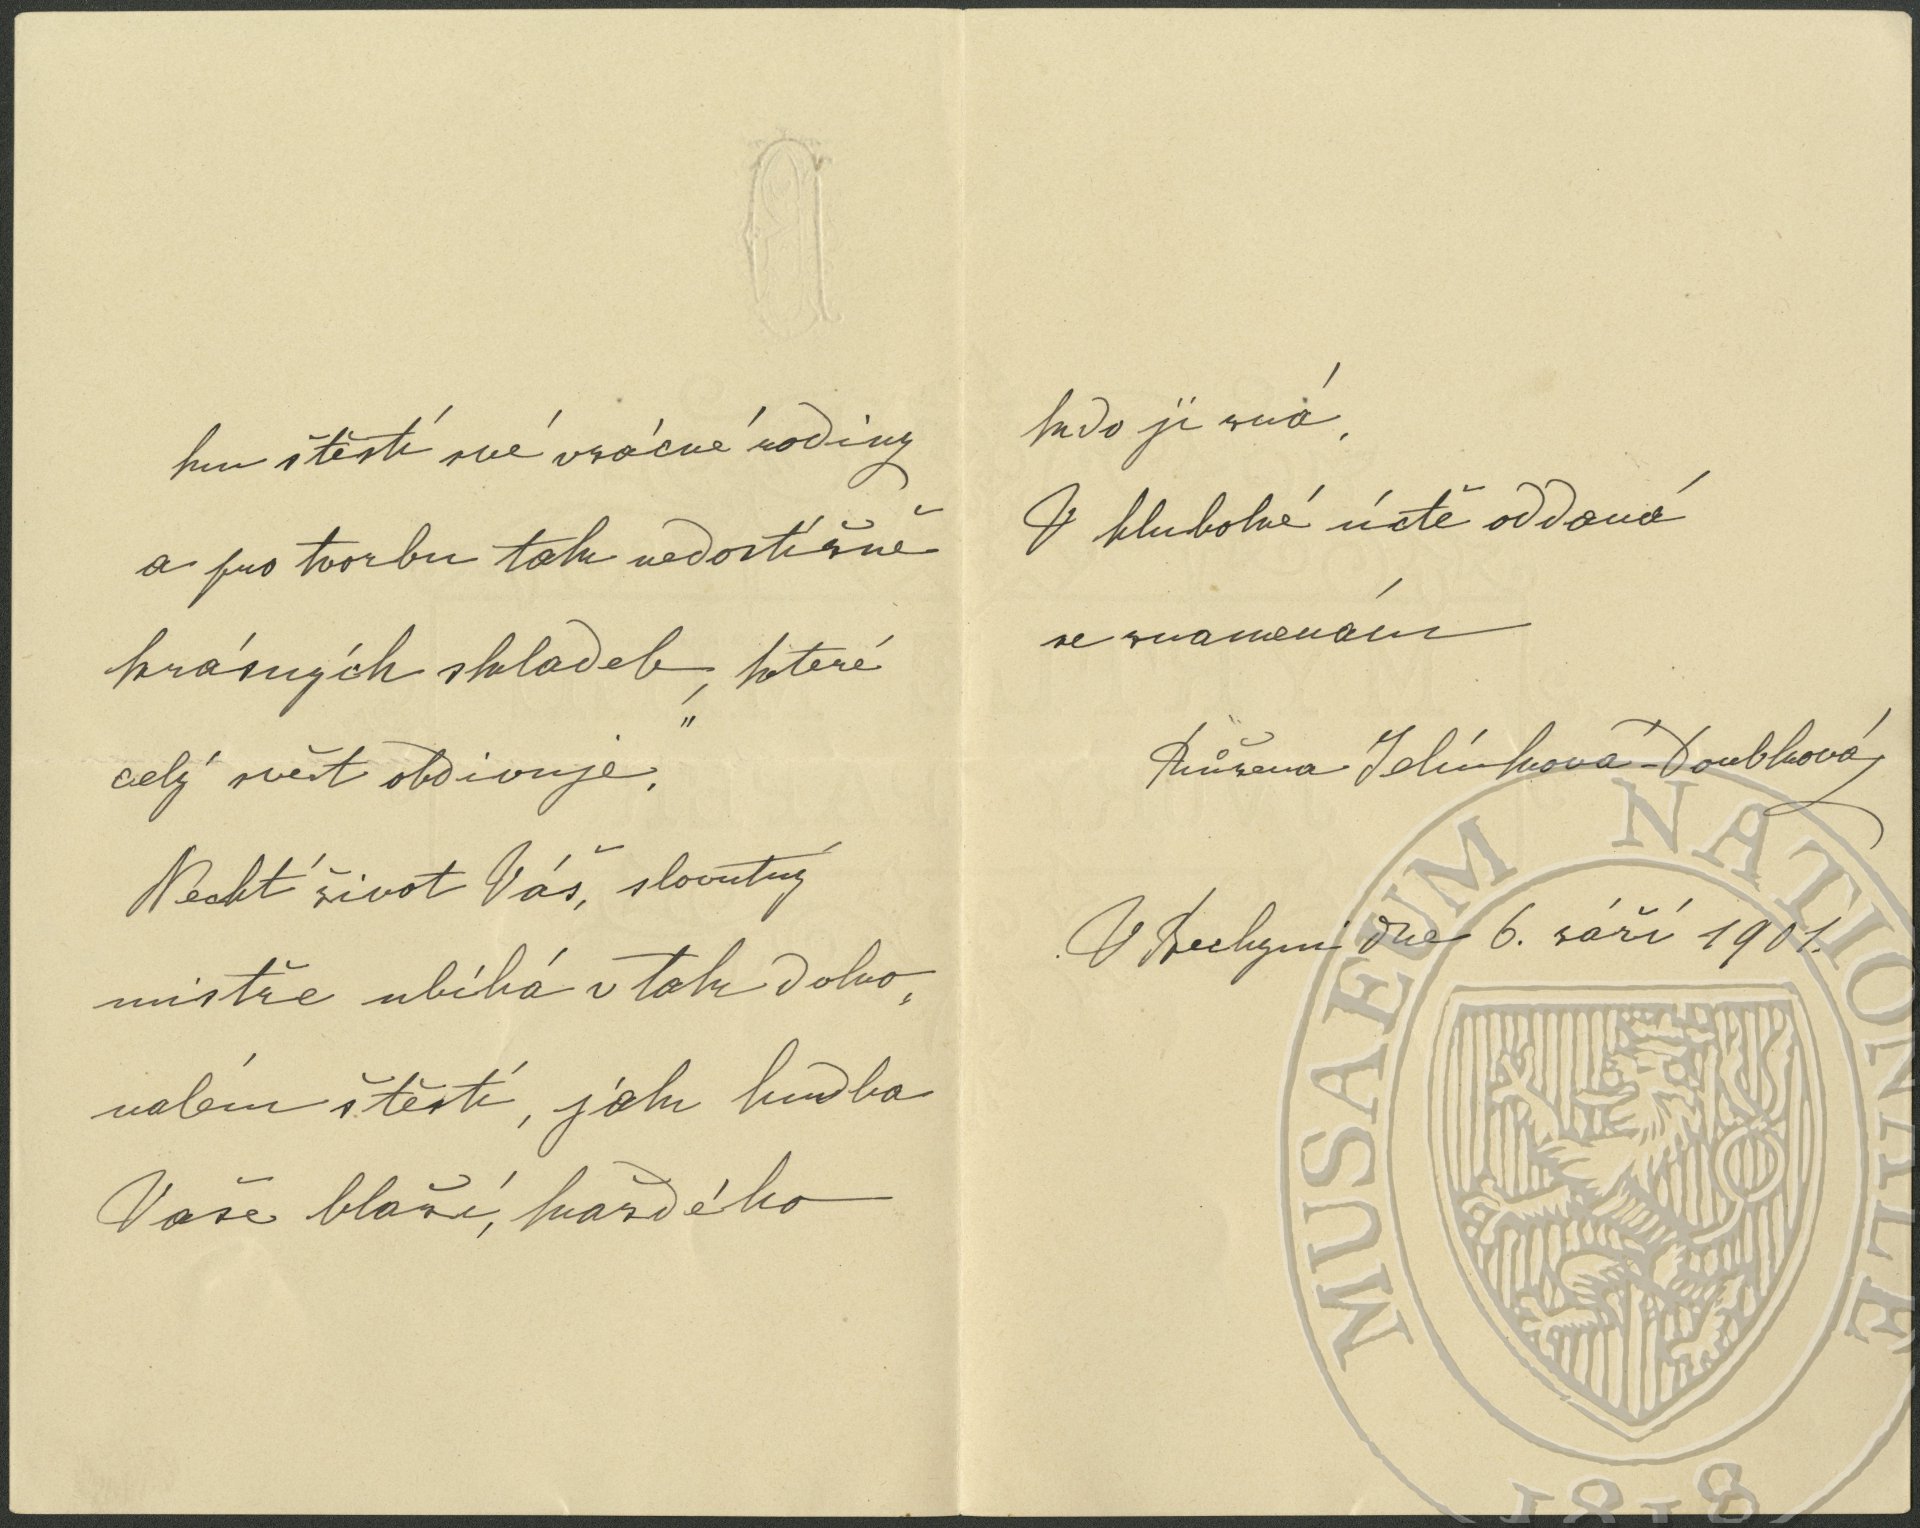 ku štěstí své vzácné rodiny
a pro tvorbu tak nedostižně
krásných skladeb, které
celý svět obdivuje."
Nechť život Váš, slovutný
mistře ubíhá v tak doko„
nalém štěstí, jak hudba
Vaše blaží, každého
kdo ji zná.
V hluboké úctě oddaná
se znamenám
Růžena Jelínková-Doubková
V Bechyni dne 6. září 1901.
MUSAEUM NATIONALE
1818